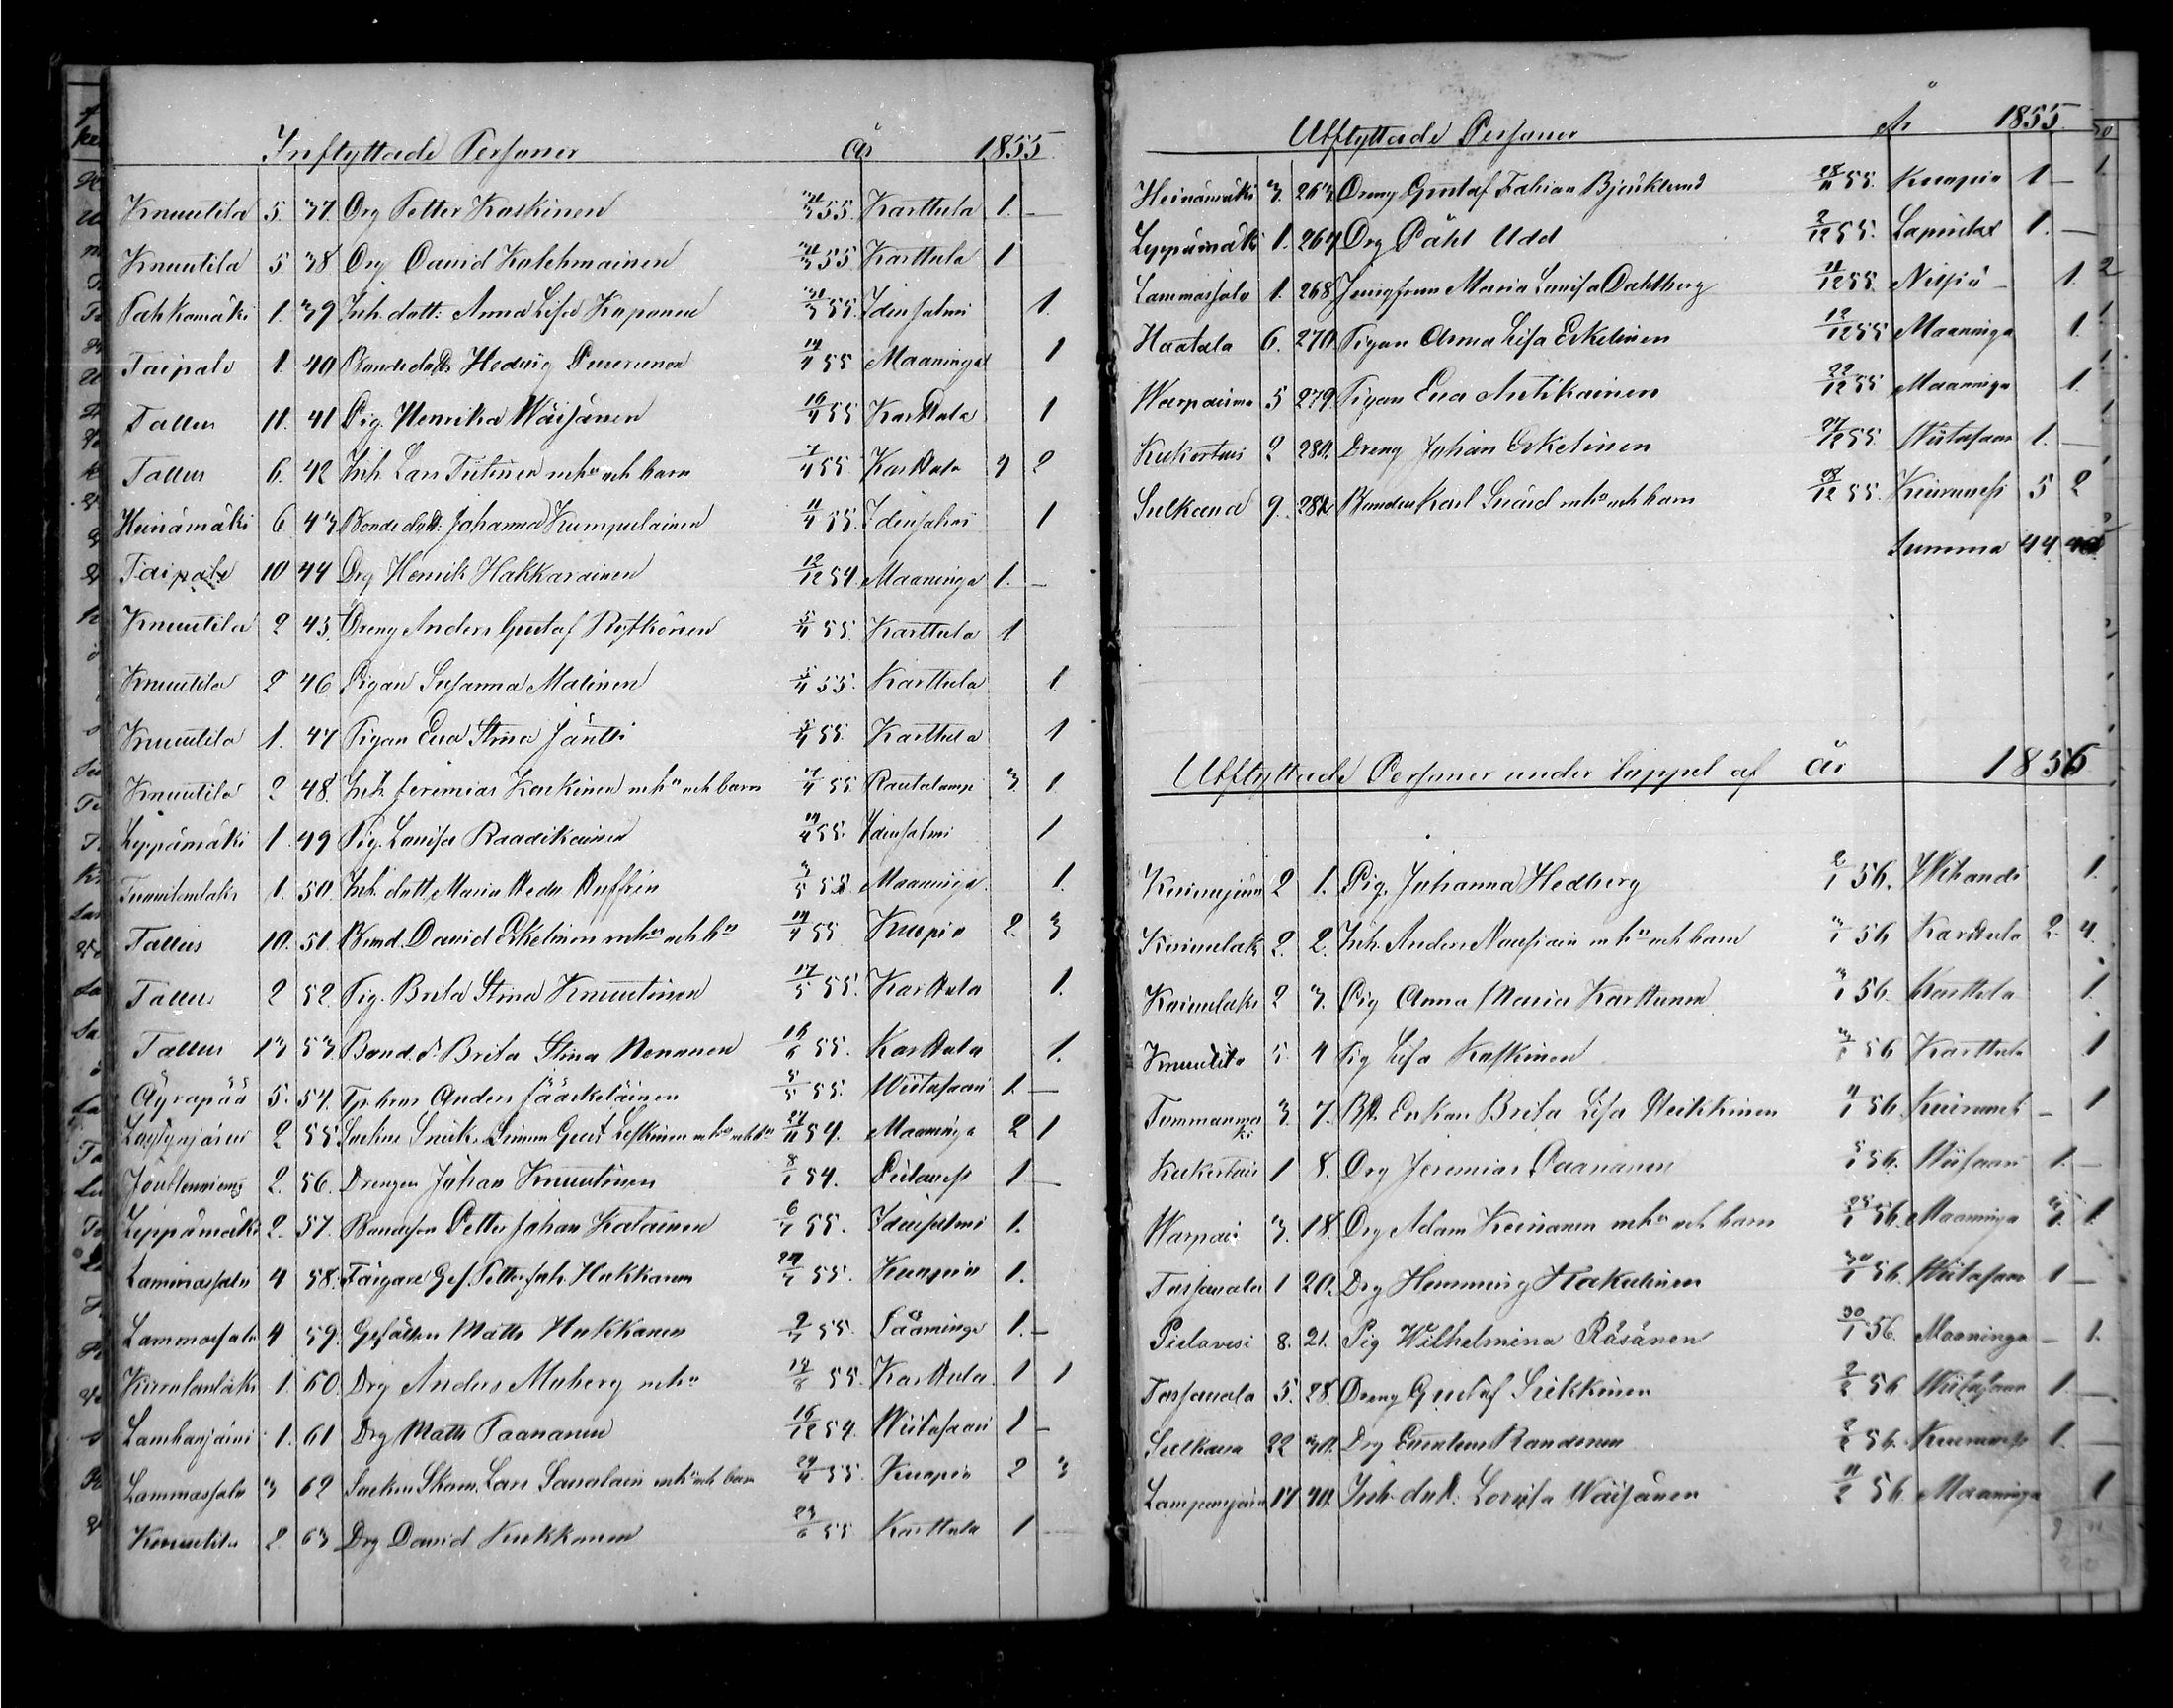 Inflyttade Personer år 1855.
Knuutila 5. 37. Drg Petter Koskinen 31/3 55. Karttula 1. —
Knuutila 5. 38 Drg David Kolehmainen 31/3 55 Karttula 1
Pahkamäki 1. 39 Inh. dott: Anna Lisa Kaponen 31/3 55. Idensalmi 1.
Taipale 1. 40 Bonded. Hedvig 14/4 55 Maaninga 1
Tallus 11. 41 Pig. Henrika Wäisänen 16/4 55 Karttula 1
Tallus 6. 42 Inh. Lars Tiitinen m hu och barn 7/4 55. Karttula 4 2
Heinämäki 6 43 Bonde dott: Johanna Kumpulainen 11/4 55. Idensalmi 1
Taipale 10 44 Drg Henrik Hakkarainen 12/12 54. Maaninga 1. —
Knuutila 2 45. Dreng Anders Gustaf Rytkönen 5/4 55. Karttula 1.
Knuutila 2 46 Pigan Susanna Matinen 5/4 55. Karttula 1.
Knuutila 1. 47 Pigan Eva Stina Jäntti 5/4 55. Karttula 1
Knuutila 2 48. Inh Jeremias Koskinen m hu och barn 17/4 55 Rautalampi 3. 1
Leppämäki 1 49 Pig. Lovisa Raadikainen 14/4 55. Idensalmi 1
1. 50. Inh. dott. Maria Heda Ruffrin 3/5 55 Maaninga. 1.
Tallus 10. 51. Bond. David Eskelinen m hu och bn 14/4 55 Kuopio 2. 3
Tallus 2 52. Pig. Brita Stina Knuutinen 17/5 55. Karttula 1.
Tallus 13 53. Bond. d. Brita Stina Nenonen 16/6 55. Karttula 1.
Äyräpää 5. 54. Anders Jääskeläinen 5/5 55. Wiitasaari 1. —
2 55. Sockne Snick. Simon Gust Leskinen m hu och bn 54. Maaninga 2 1
2. 56. Drengen Johan Knuutinen 8/1 54. Pielavesi 1 —
Leppämäki 2. 57. Bondeson Petter Johan Kolainen 6/7 55. Idensalmi 1.
Lammassalo 4 58. Färgare Ges. Petter Joh. Hukkanen 24/7 55. Kuopio 1.
Lammassalo 4 59. Gesällen Matts Hukkanen 2/7 55. Sääminge 1. —
1. 60. Drg Anders Moberg m hu 19/8 55. Karttula. 1 1
1. 61 Drg Matts Paananen 16/12 54. Wiitasaari 1 —
Lammassalo 3 62 Socken Skom. Lars m hu och barn 29/4 55. Kuopio 2 3
Knuutila 2. 63 Drg David Kukkonen 23/6 55 Karttula 1 —
Utflyttade Personer År 1855.
Heinämäki 3. 263 Dreng Gustaf Fabian Björklund 28/11 55. Kuopio 1 —
Leppämäki 1. 264 Drg Påhl Udd 2/12 55. 1. —
Lammassalo 1. 268 Jungfrun Maria Lovisa Dahlberg 11/12 55. Nilsiä — 1.
Haatala 6. 270. Pigan Anna Lisa Eskelinen 12/12 55 Maaninga 1.
Warpaisma 5 279. Pigan Eva Antikainen 22/12 55 Maaninga 1.
2 280. Dreng Johan Eskelinen 27/12 55. Wiitasaari 1. —
Sulkava 9. 282 Bonden Karl m hu och barn 28/12 55. Keiteleesi 5 2
Summa 44. 40
Utflyttade Personer under loppet af år 1856
2 1. Pig. Johanna Hedberg 2/1 56. Wihandi 1.
2. 2. Inh. Anders m hu och barn 3/1 56 Karttula 2. 4.
2 3. Pig Anna Maria Karttunen 3/1 56. Karttula 1.
Knuutila 5. 4 Pig Lisa Koskinen 3/1 56 Karttula 1
3. 7. Enkan Brita Lisa Heikkinen 4/1 56. — 1
1 8. Drg Jeremias Paananen 5/1 56. Wiitasaari 1. —
Warpais 3. 18. Drg Adam Keinanen m hu och barn 25/1 56. Maaninga 3. 1.
1 20. Drg Hemming Hakulinen 30/1 56. Wiitasaari 1 —
Pielavesi 8. 21. Pig Wilhelmina Räsänen 30/1 56. Maaninga — 1.
5. 28. Dreng Gustaf Sikkinen 2/2 56 Wiitasaari 1. —
Sulkava 22 30. Drg Randonen 2/2 56. 1. —
14 40. Inh. dott: Lovisa Wäisänen 11/2 56. Maaninga 1